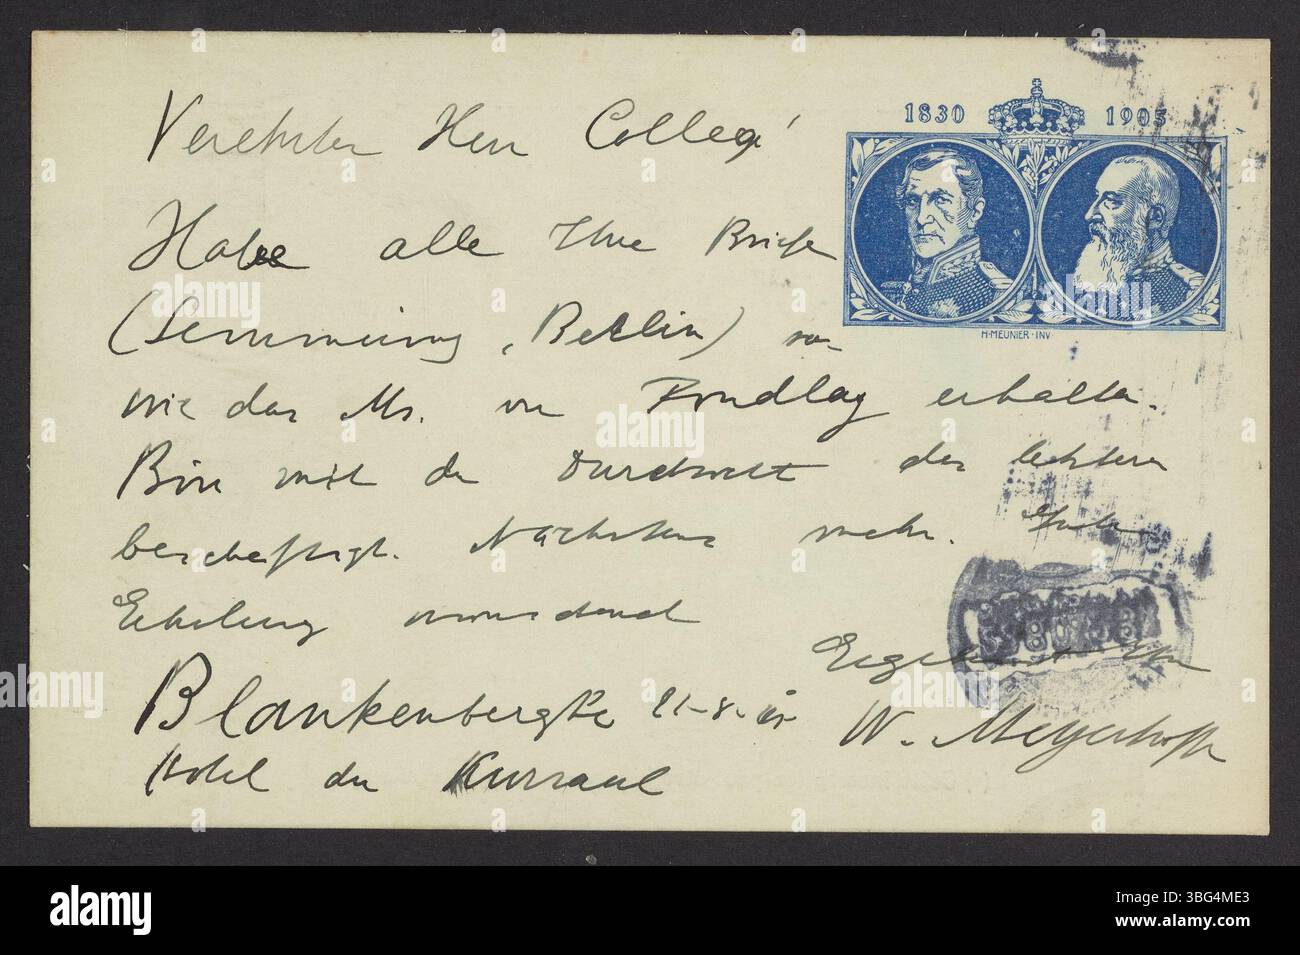 Verehrter Herr College!
1830 1905
Habe alle Ihre Briefe
(Semmering, Berlin) so-
H·MEUNIER·INV
wie das Ms. von erhalten.
Bin mit der Durchsicht des letzteren
beschäftigt. Nächstens mehr. Gute
Erholung wünschend
Ergebenst Ihr
Blankenberghe 21-8-05
W. Meyerhoffer
Hotel du Kursaal
alamy
Image ID: 3BG4ME3
www.alamy.com